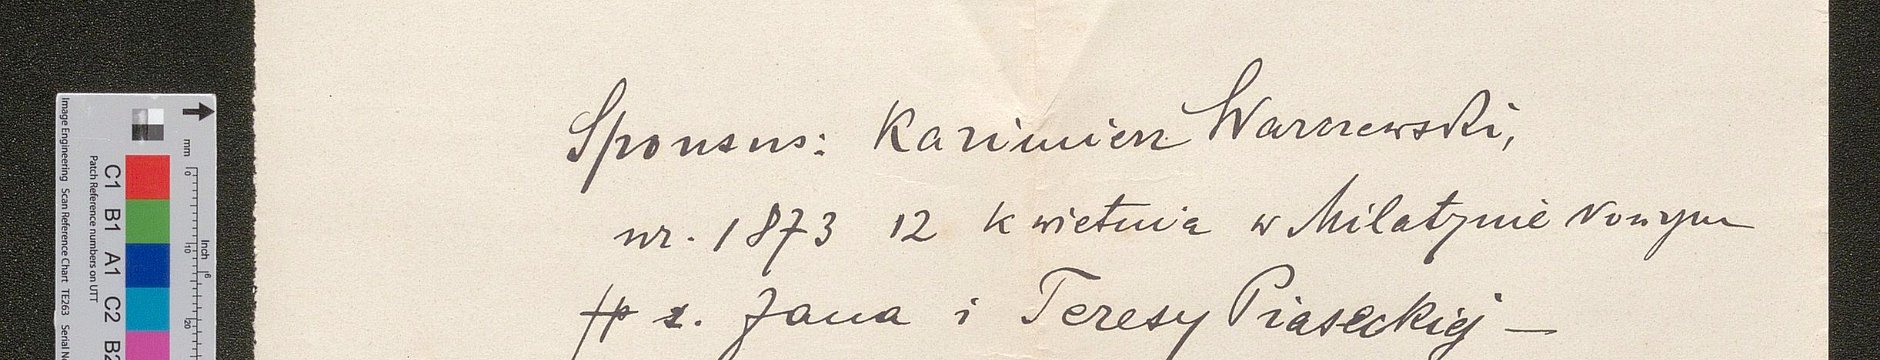 Sponsus: Kazimierz Warszewski,
ur. 1873 12 kwietnia w Milatynie Nowym
z. Jana i Teresy Piaseckiej —
Image Engineering Scan Reference Chart TE263 Serial
Patch Reference numbers on UTT
C1 B1 A1 C2 B2
mm
0
10
20
Inch